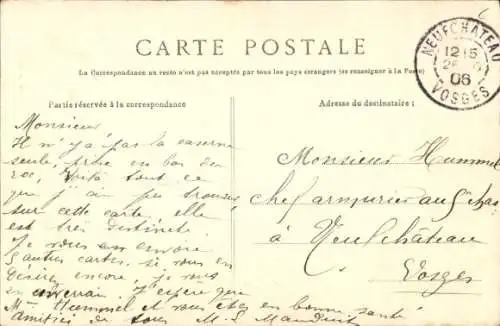 CARTE POSTALE
La Correspondance au recto n'est pas acceptée par tous les pays étrangers (se renseigner à la Poste)
NEUFCHATEAU
12 15
06
VOSGES
Partie réservée à la correspondance
Adresse du destinataire :
Monsieur
Il n'y a pas la caserne
seule, prise en bas du
roc, voilà tout ce
que j'ai pu trouver
sur cette carte elle
est très distincte
Je vous en envoie
5 autres cartes. si vous en
désirez encore, je vous
en enverrai. J'espère que
Mme Hummel et vous êtes en bonne santé
amitiés de tous M. L.
Monsieur Hummel
chef armurier au
à Neufchâteau
Vosges